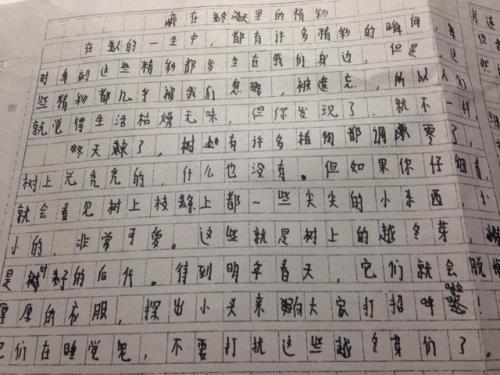 藏在 里的精彩
在人的一生中，都有许多精彩的瞬间，
时 的这些精彩都发生在我们身边，但是
些精彩都几乎被我们忽略，被遗忘，所以人们
就觉得生活枯燥无味，但你发现了，就不一样
冬天来了，树 有许多植物都凋零了，
树上光秃秃的，什么也没有。但如果你仔细看，
就会看见树上枝条上都一些尖尖的小东西
小的，非常可爱。这些就是树上的越冬芽，
是树籽的后代。得到明年春天，它们就会脱
厚厚的衣服，探出小头来向大家打招呼
它们在睡觉呢，不要打扰这些越冬芽们了。